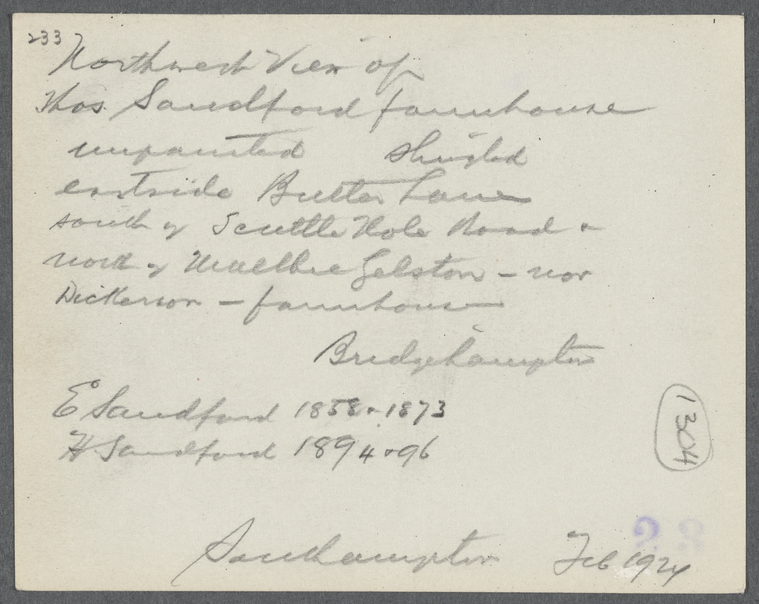 233
Northwest View of
Thos. Sandford farmhouse
unpainted shingled
eastside Butter Lane
south of Scuttle Hole Road &
north of Maltbie Gelston – now
Dickerson – farmhouse
Bridgehampton
E Sandford 1858 & 1873
H Sandford 1894 & 96
1304
Southampton Feb 1924